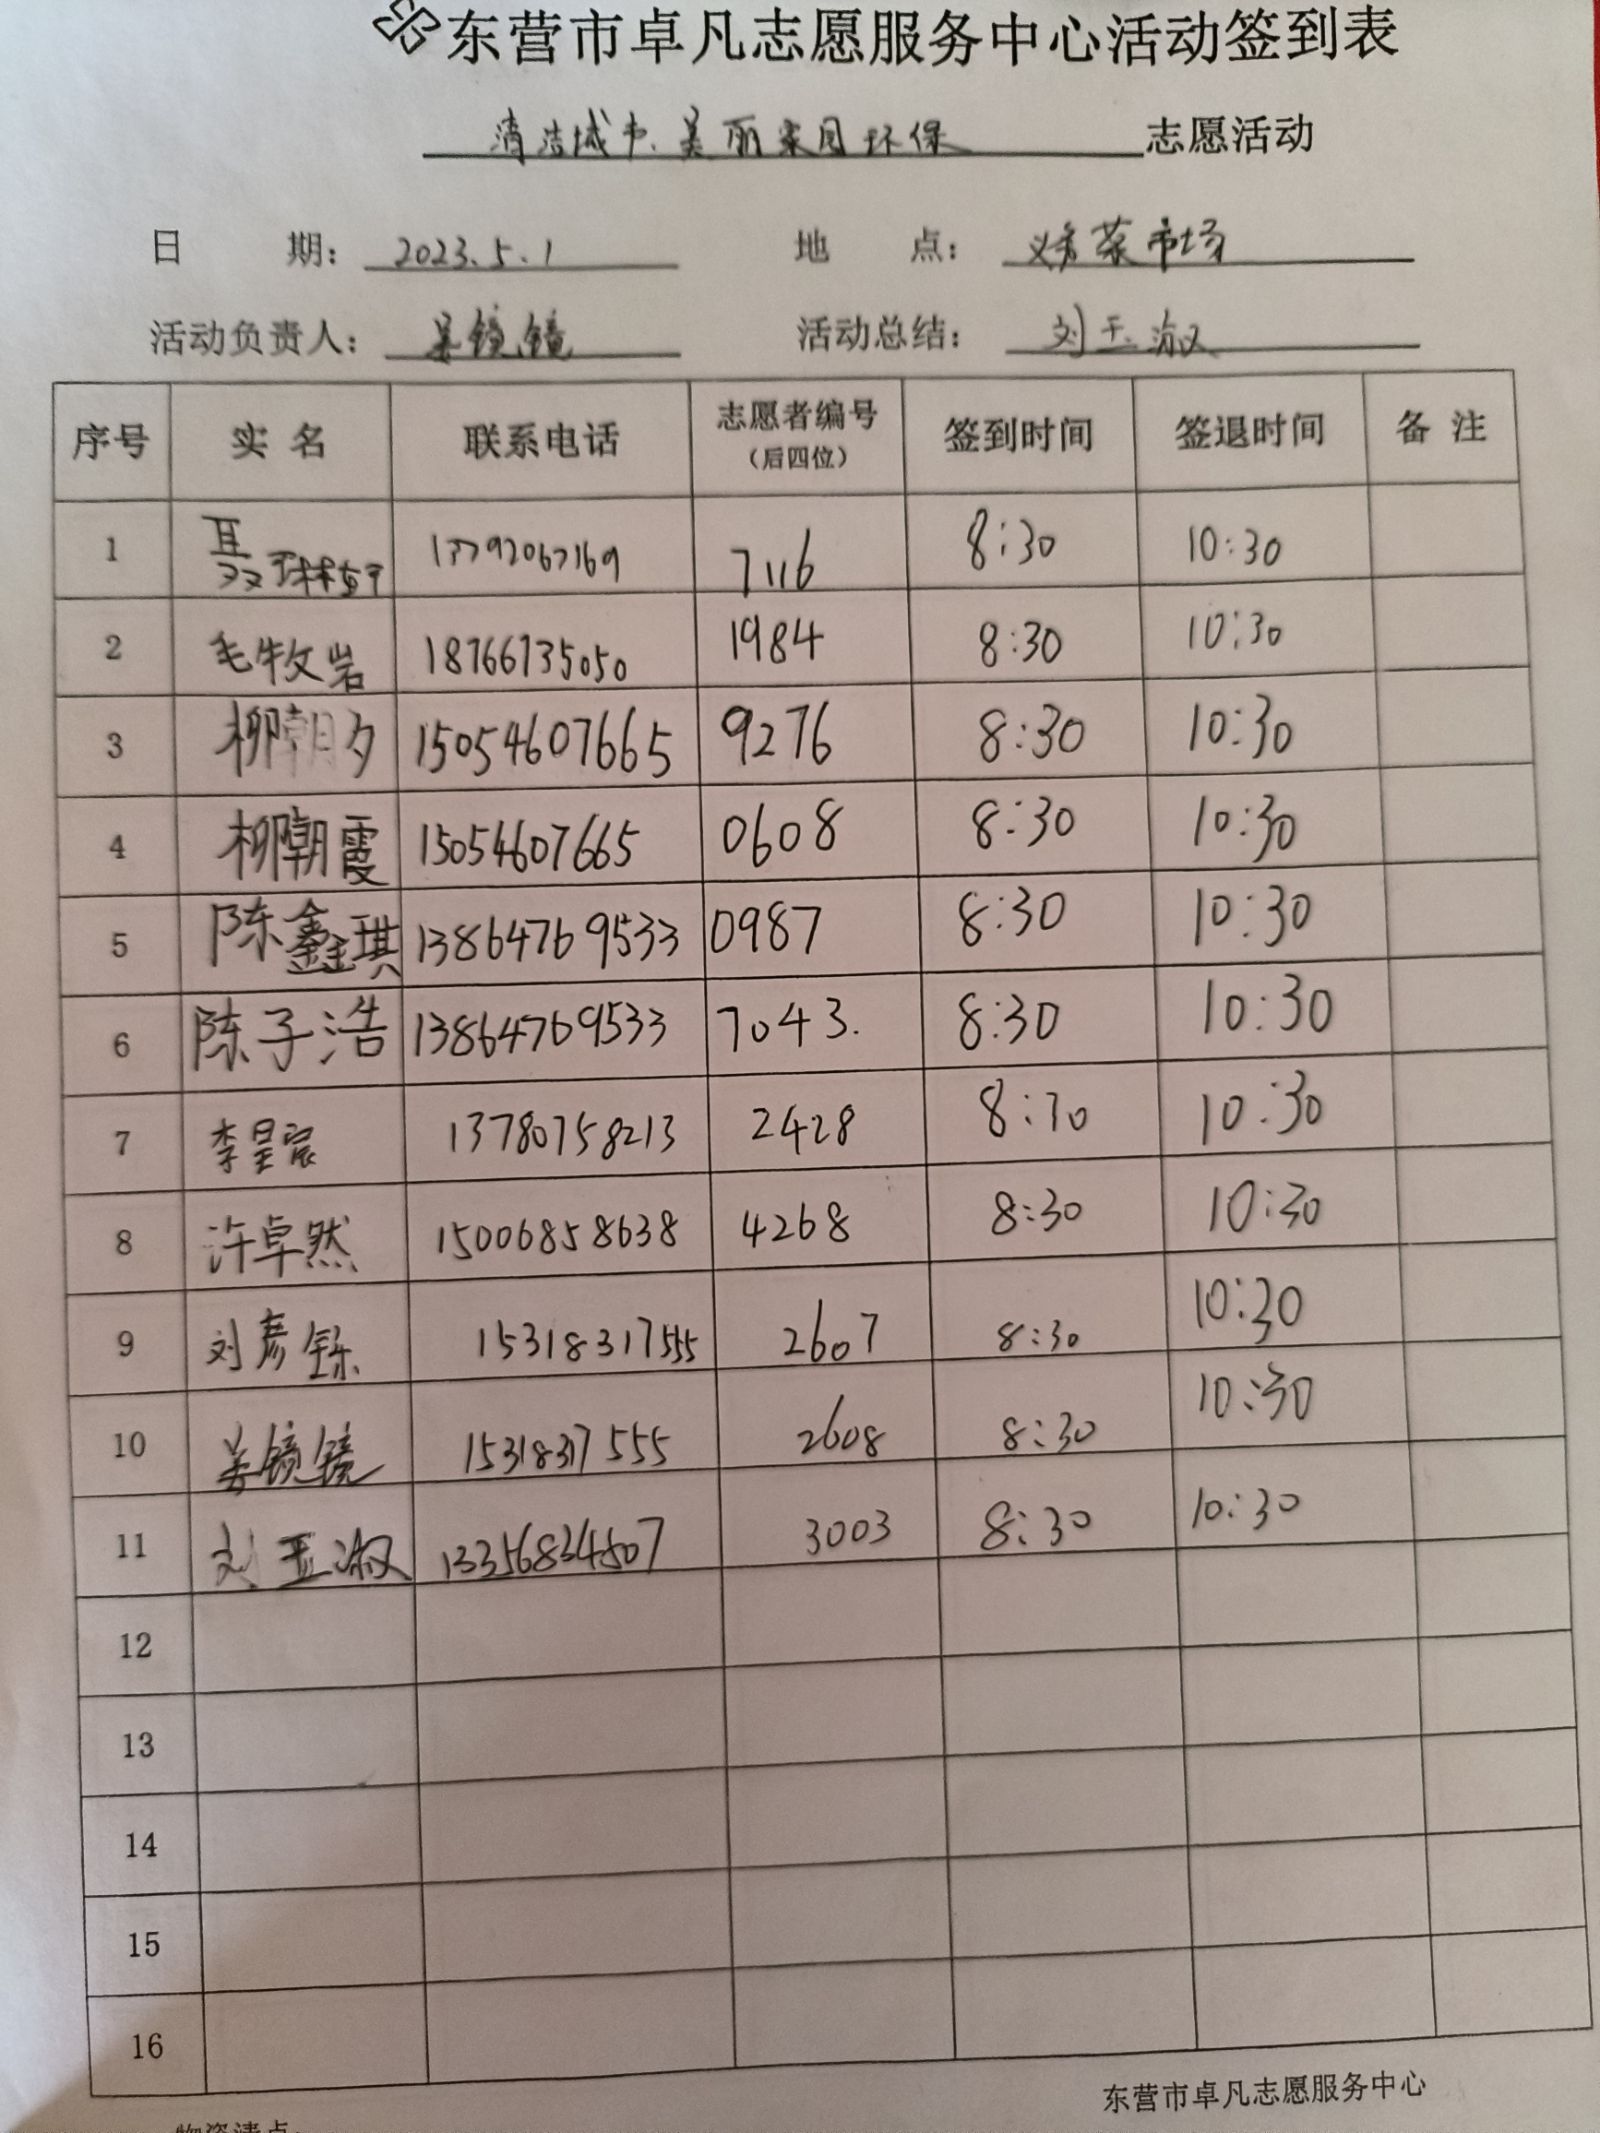 东营市卓凡志愿服务中心活动签到表
清洁城市美丽家园环保 志愿活动
日 期: 2023.5.1 地 点: 菜市场
活动负责人: 姜镜镜 活动总结: 刘玉淑
序号 实 名 联系电话 志愿者编号(后四位) 签到时间 签退时间 备 注
1 聂琳婷 13792067169 7116 8:30 10:30
2 毛牧岩 18766735050 1984 8:30 10:30
3 柳朝夕 15054607665 9276 8:30 10:30
4 柳朝霞 15054607665 0608 8:30 10:30
5 陈鑫琪 13864769533 0987 8:30 10:30
6 陈子浩 13864769533 7043. 8:30 10:30
7 李昱宸 13780758213 2428 8:30 10:30
8 许卓然 15006858638 4268 8:30 10:30
9 刘彦铄 15318317555 2607 8:30 10:30
10 姜镜镜 15318317555 2608 8:30 10:30
11 刘玉淑 13356834507 3003 8:30 10:30
12
13
14
15
16
东营市卓凡志愿服务中心
物资清点: